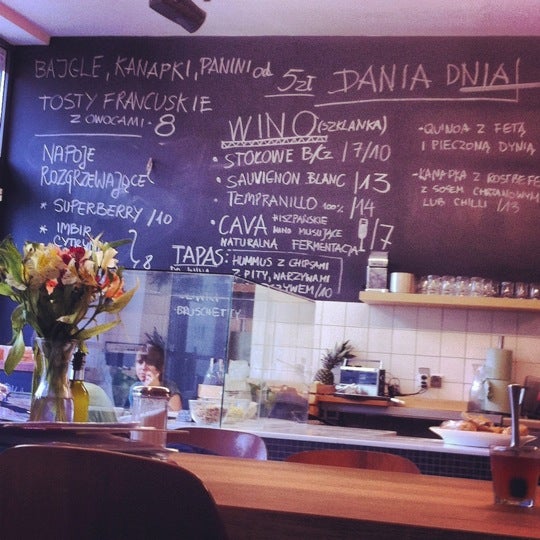 BAJGLE, KANAPKI, PANINI od 5zł
TOSTY FRANCUSKIE
Z OWOCAMI - 8
NAPOJE
ROZGRZEWAJĄCE
* SUPERBERRY /10
* IMBIR
CYTRYNA
8
WINO (SZKLANKA)
• STOŁOWE B/CZ /7/10
• SAUVIGNON BLANC /13
• TEMPRANILLO 100% /14
• CAVA HISZPAŃSKIE
WINO MUSUJĄCE
NATURALNA FERMENTACJA /17
TAPAS: HUMMUS Z CHIPSAMI
Z PITY, WARZYWAMI
/10
BRUSCHETTY
DANIA DNIA!
- QUINOA Z FETĄ
I PIECZONĄ DYNIĄ
- KANAPKA Z ROSTBEFEM
Z SOSEM CHRZANOWYM
LUB CHILLI /13